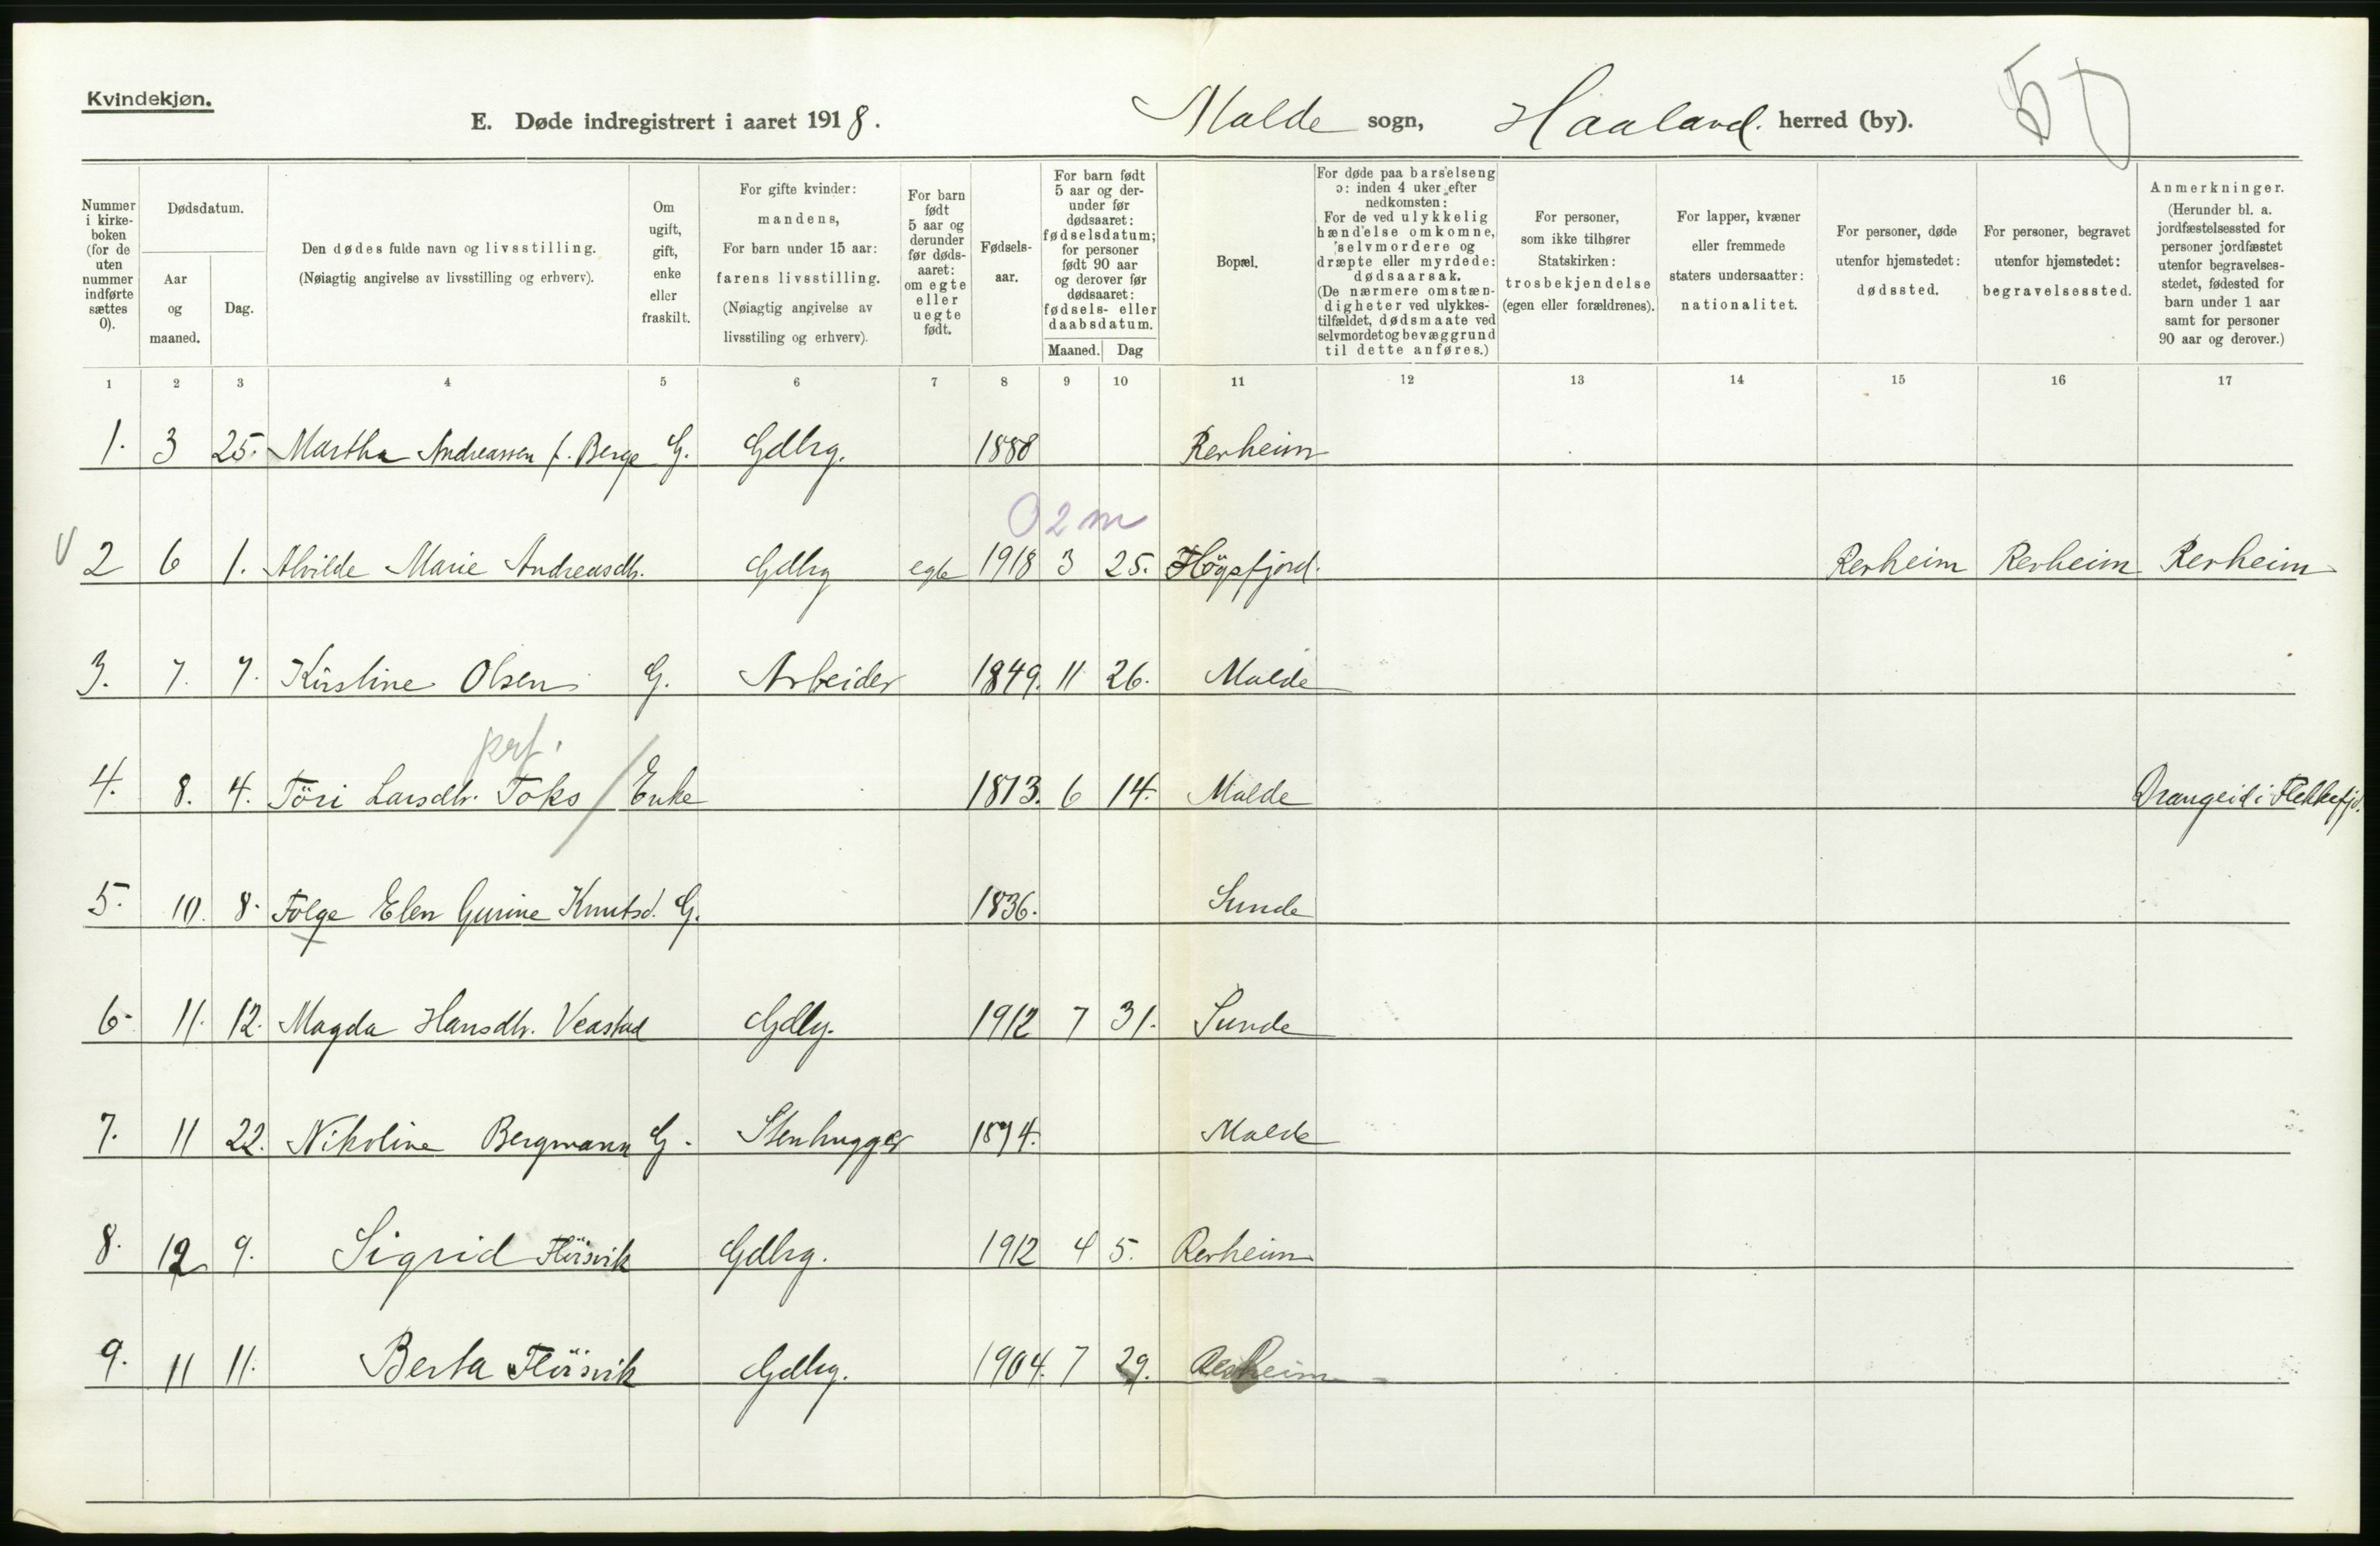 Kvindekjøn.
E. Døde indregistrert i aaret 1918. Malde sogn, Haaland. herred (by). 5
Nummer i kirkeboken (for de uten nummer indførte sættes 0).
Dødsdatum.
Aar og maaned.
Dag.
Den dødes fulde navn og livsstilling.
(Nøiagtig angivelse av livsstilling og erhverv).
Om ugift, gift, enke eller fraskilt.
For gifte kvinder: mandens,
For barn under 15 aar: farens livsstilling.
(Nøiagtig angivelse av livsstiling og erhverv).
For barn født 5 aar og derunder før dødsaaret: om egte eller uegte født.
Fødselsaar.
For barn født 5 aar og derunder før dødsaaret: fødselsdatum; for personer født 90 aar og derover før dødsaaret: fødsels- eller daabsdatum.
Maaned. Dag
Bopæl.
For døde paa barselseng ɔ: inden 4 uker efter nedkomsten:
For de ved ulykkelig hændelse omkomne, selvmordere og dræpte eller myrdede: dødsaarsak.
(De nærmere omstændigheter ved ulykkestilfældet, dødsmaate ved selvmordet og bevæggrund til dette anføres.)
For personer, som ikke tilhører Statskirken: trosbekjendelse (egen eller forældrenes).
For lapper, kvæner eller fremmede staters undersaatter: nationalitet.
For personer, døde utenfor hjemstedet: dødssted.
For personer, begravet utenfor hjemstedet: begravelsessted.
Anmerkninger.
(Herunder bl. a. jordfæstelsessted for personer jordfæstet utenfor begravelsesstedet, fødested for barn under 1 aar samt for personer 90 aar og derover.)
1 2 3 4 5 6 7 8 9 10 11 12 13 14 15 16 17
1. 3 25. Martha Andreassen f. Berge G. Gdbrg. 1888 Revheim
0 2 m
2 6 1. Alvilde Marie Andreasdtr. Gdbrg egte 1918 3 25. Högsfjord. Revheim Revheim Revheim
3. 7. 7. Kirstine Olsen G. Arbeider 1849. 11 26. Malde
prf.
4. 8. 4. Töri Larsdtr. Toks Enke 1813. 6 14. Malde Drangeid i Flekkefjd.
5. 10. 8. Folge Elen Gurine Knutsd. G. 1836. Sunde
6. 11. 12. Magda Hansdtr. Veastad Gdbg. 1912 7 31. Sunde
7. 11 22. Nikoline Bergmann G. Stenhugger 1874. Malde
8. 12 9. Sigrid Flörsvik Gdbrg. 1912 4 5. Revheim
9. 11 11. Berta Flörsvik Gdbrg. 1904. 7 29. Revheim